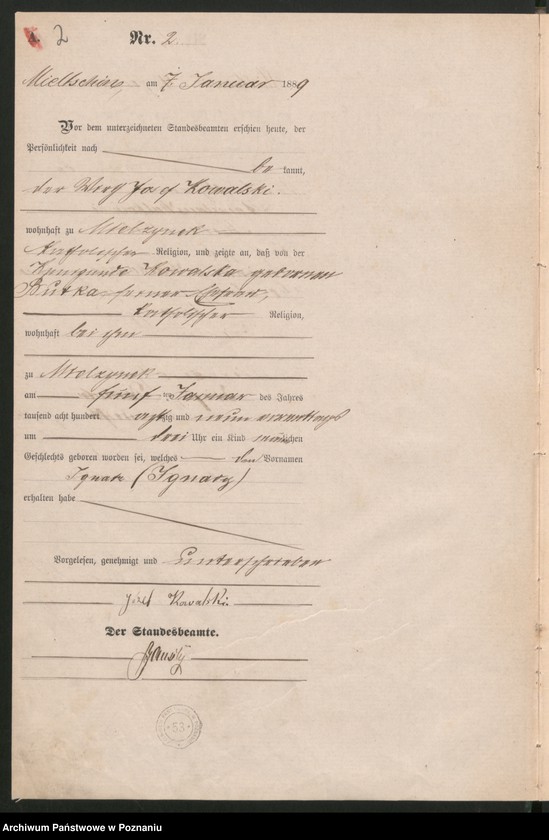 A. 2 Nr. 2.
Mieltschin, am 7 Januar 1889
Vor dem unterzeichneten Standesbeamten erschien heute, der
Persönlichkeit nach
be kannt,
der Josef Kowalski.
wohnhaft zu Mielzynek
katholischer Religion, und zeigte an, daß von der
Kunigunda Kowalska geborenen
Butka seiner Ehefrau,
katholischer Religion,
wohnhaft bei ihm
zu Mielzynek
am fünf ten Januar des Jahres
tausend acht hundert achtzig und neun Vormittags
um drei Uhr ein Kind männlichen
Geschlechts geboren worden sei, welches den Vornamen
Ignatz (Ignacy)
erhalten habe
Vorgelesen, genehmigt und unterschrieben
Józef Kowalski
Der Standesbeamte.
53
Archiwum Państwowe w Poznaniu